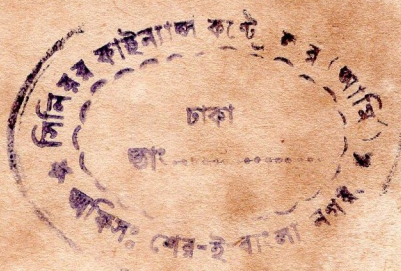 সিনিয়র ফাইন্যান্স কন্ট্রোলার (আর্মি)
ঢাকা
তাং..................
অফিস: শের-ই বাংলা নগর